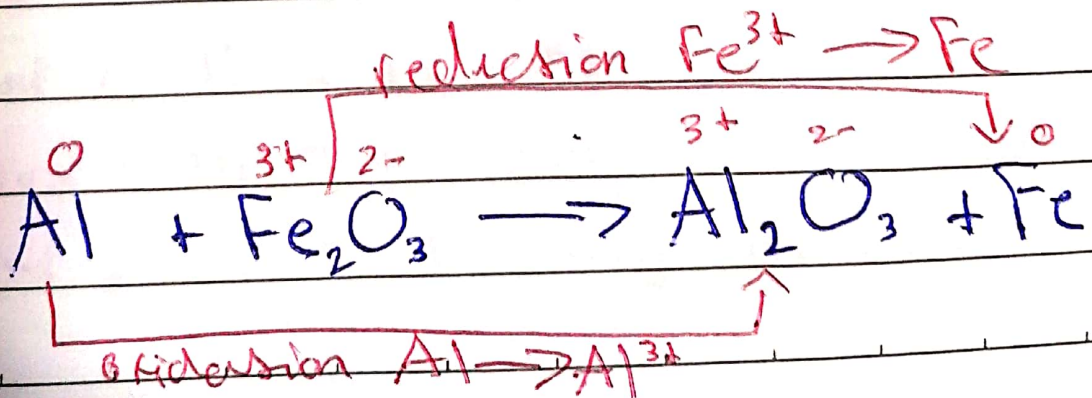 reduction Fe³⁺ → Fe
0 3+ 2- 3+ 2- 0
Al + Fe₂O₃ → Al₂O₃ + Fe
Al → Al³⁺